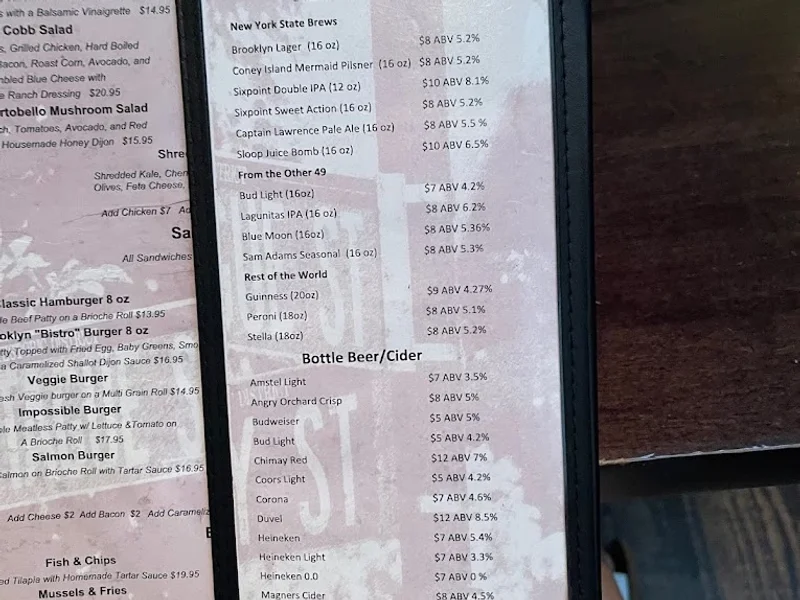 s with a Balsamic Vinaigrette $14.95
Cobb Salad
s, Grilled Chicken, Hard Boiled
Bacon, Roast Corn, Avocado, and
mbled Blue Cheese with
e Ranch Dressing $20.95
rtobello Mushroom Salad
ch, Tomatoes, Avocado, and Red
Housemade Honey Dijon $15.95
Shre
Shredded Kale, Cher
Olives, Feta Cheese,
Add Chicken $7 Ad
Sa
All Sandwiches
lassic Hamburger 8 oz
le Beef Patty on a Brioche Roll $13.95
oklyn "Bistro" Burger 8 oz
tty Topped with Fried Egg, Baby Greens, Smo
a Caramelized Shallot Dijon Sauce $16.95
Veggie Burger
esh Veggie burger on a Multi Grain Roll $14.95
Impossible Burger
ble Meatless Patty w/ Lettuce &Tomato on
A Brioche Roll $17.95
Salmon Burger
Salmon on Brioche Roll with Tartar Sauce $16.95
Add Cheese $2 Add Bacon $2 Add Carameliz
Fish & Chips
ed Tilapia with Homemade Tartar Sauce $19.95
Mussels & Fries
New York State Brews
Brooklyn Lager (16 oz) $8 ABV 5.2%
Coney Island Mermaid Pilsner (16 oz) $8 ABV 5.2%
Sixpoint Double IPA (12 oz) $10 ABV 8.1%
Sixpoint Sweet Action (16 oz) $8 ABV 5.2%
Captain Lawrence Pale Ale (16 oz) $8 ABV 5.5 %
Sloop Juice Bomb (16 oz) $10 ABV 6.5%
From the Other 49
Bud Light (16oz) $7 ABV 4.2%
Lagunitas IPA (16 oz) $8 ABV 6.2%
Blue Moon (16oz) $8 ABV 5.36%
Sam Adams Seasonal (16 oz) $8 ABV 5.3%
Rest of the World
Guinness (20oz) $9 ABV 4.27%
Peroni (18oz) $8 ABV 5.1%
Stella (18oz) $8 ABV 5.2%
Bottle Beer/Cider
Amstel Light $7 ABV 3.5%
Angry Orchard Crisp $8 ABV 5%
Budweiser $5 ABV 5%
Bud Light $5 ABV 4.2%
Chimay Red $12 ABV 7%
Coors Light $5 ABV 4.2%
Corona $7 ABV 4.6%
Duvel $12 ABV 8.5%
Heineken $7 ABV 5.4%
Heineken Light $7 ABV 3.3%
Heineken 0.0 $7 ABV 0 %
Magners Cider $8 ABV 4.5%